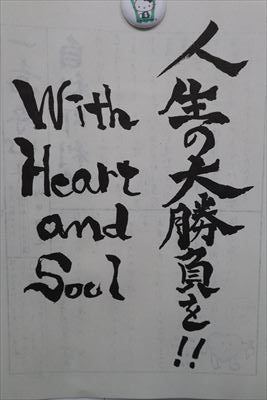 人生の大勝負を!!
With
Heart
and
Soul